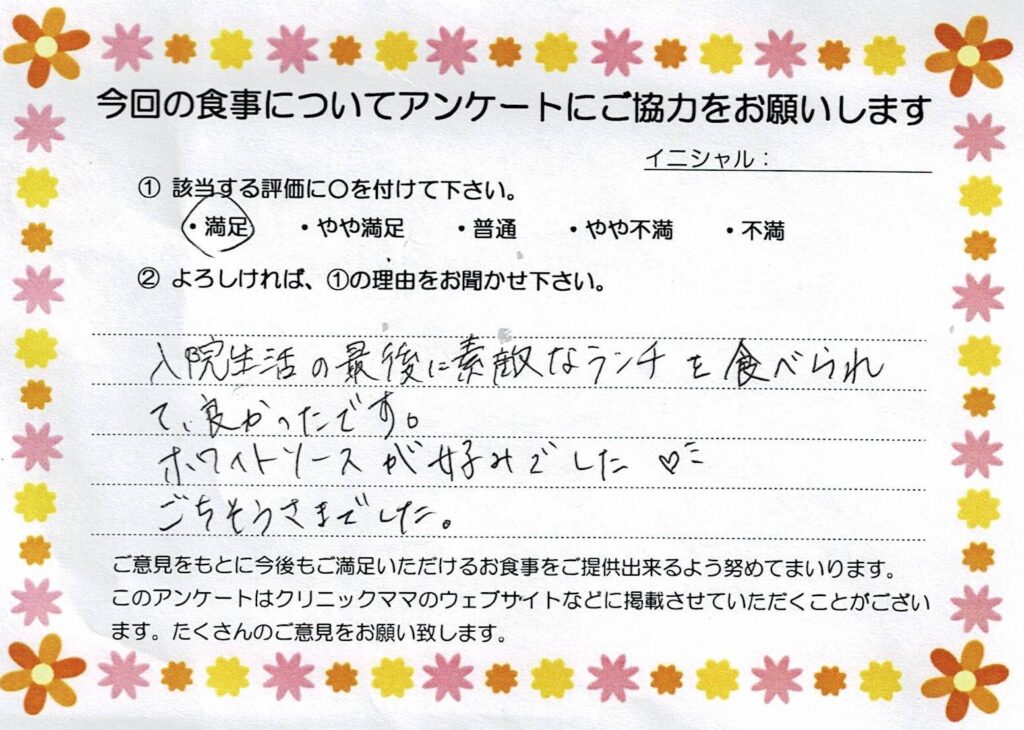 今回の食事についてアンケートにご協力をお願いします
イニシャル：
① 該当する評価に〇を付けて下さい。
・満足 ・やや満足 ・普通 ・やや不満 ・不満
② よろしければ、①の理由をお聞かせ下さい。
入院生活の最後に素敵なランチを食べられ
て、良かったです。
ホワイトソースが好みでした♡
ごちそうさまでした。
ご意見をもとに今後もご満足いただけるお食事をご提供出来るよう努めてまいります。
このアンケートはクリニックママのウェブサイトなどに掲載させていただくことがござい
ます。たくさんのご意見をお願い致します。